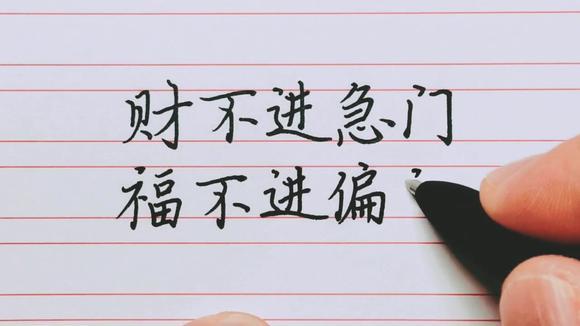 财不进急门
福不进偏